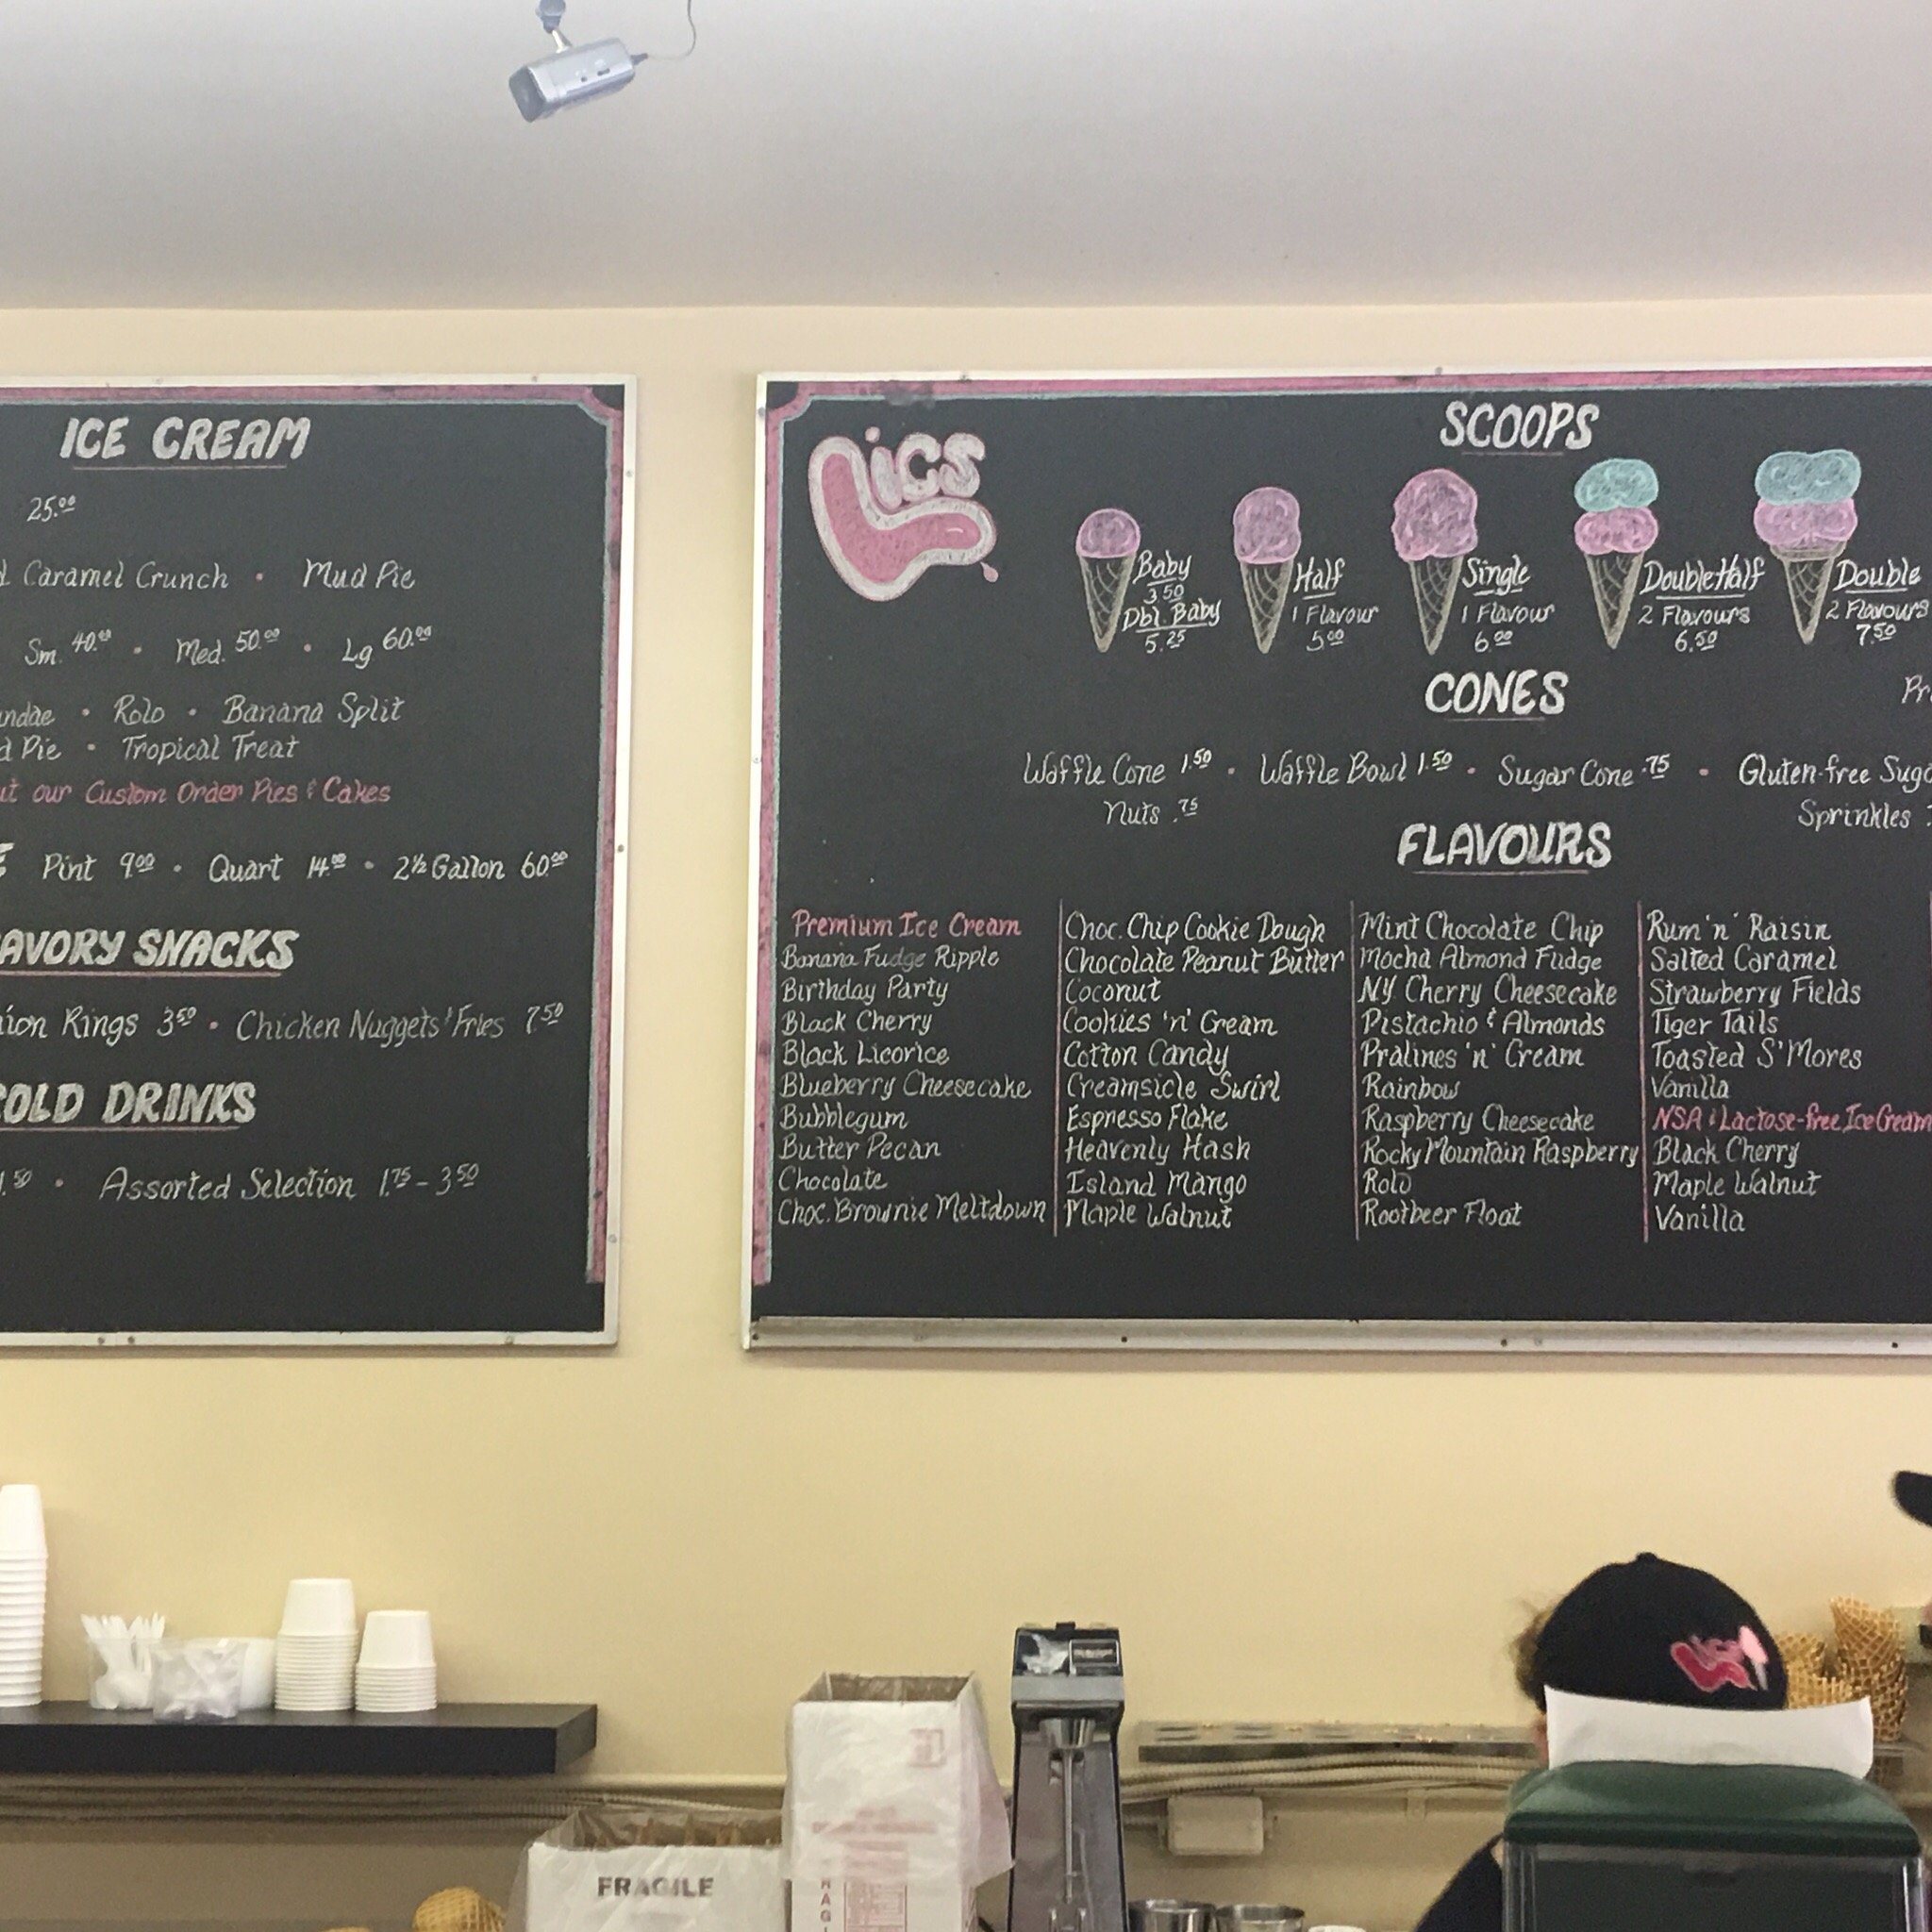 ICE CREAM
25.00
Caramel Crunch • Mud Pie
Sm. 40.00 • Med. 50.00 • Lg 60.00
• Rolo • Banana Split
Pie • Tropical Treat
our Custom Order Pies & Cakes
Pint 9.00 • Quart 14.00 • 2½ Gallon 60.00
AVORY SNACKS
Rings 3.50 • Chicken Nuggets & Fries 7.50
OLD DRINKS
.50 • Assorted Selection 1.75 - 3.50
Lics
SCOOPS
Baby
3.50
Dbl. Baby
5.25
Half
1 Flavour
5.00
Single
1 Flavour
6.00
Double Half
2 Flavours
6.50
Double
2 Flavours
7.50
CONES
Waffle Cone 1.50 • Waffle Bowl 1.50 • Sugar Cone .75 • Gluten-free
Nuts .75
Sprinkles
FLAVOURS
Premium Ice Cream
Banana Fudge Ripple
Birthday Party
Black Cherry
Black Licorice
Blueberry Cheesecake
Bubblegum
Butter Pecan
Chocolate
Choc. Brownie Meltdown
Choc. Chip Cookie Dough
Chocolate Peanut Butter
Coconut
Cookies 'n' Cream
Cotton Candy
Creamsicle Swirl
Espresso Flake
Heavenly Hash
Island Mango
Maple Walnut
Mint Chocolate Chip
Mocha Almond Fudge
NY Cherry Cheesecake
Pistachio & Almonds
Pralines 'n' Cream
Rainbow
Raspberry Cheesecake
Rocky Mountain Raspberry
Rolo
Rootbeer Float
Rum 'n' Raisin
Salted Caramel
Strawberry Fields
Tiger Tails
Toasted S'Mores
Vanilla
NSA & Lactose-free Ice Cream
Black Cherry
Maple Walnut
Vanilla
FRAGILE